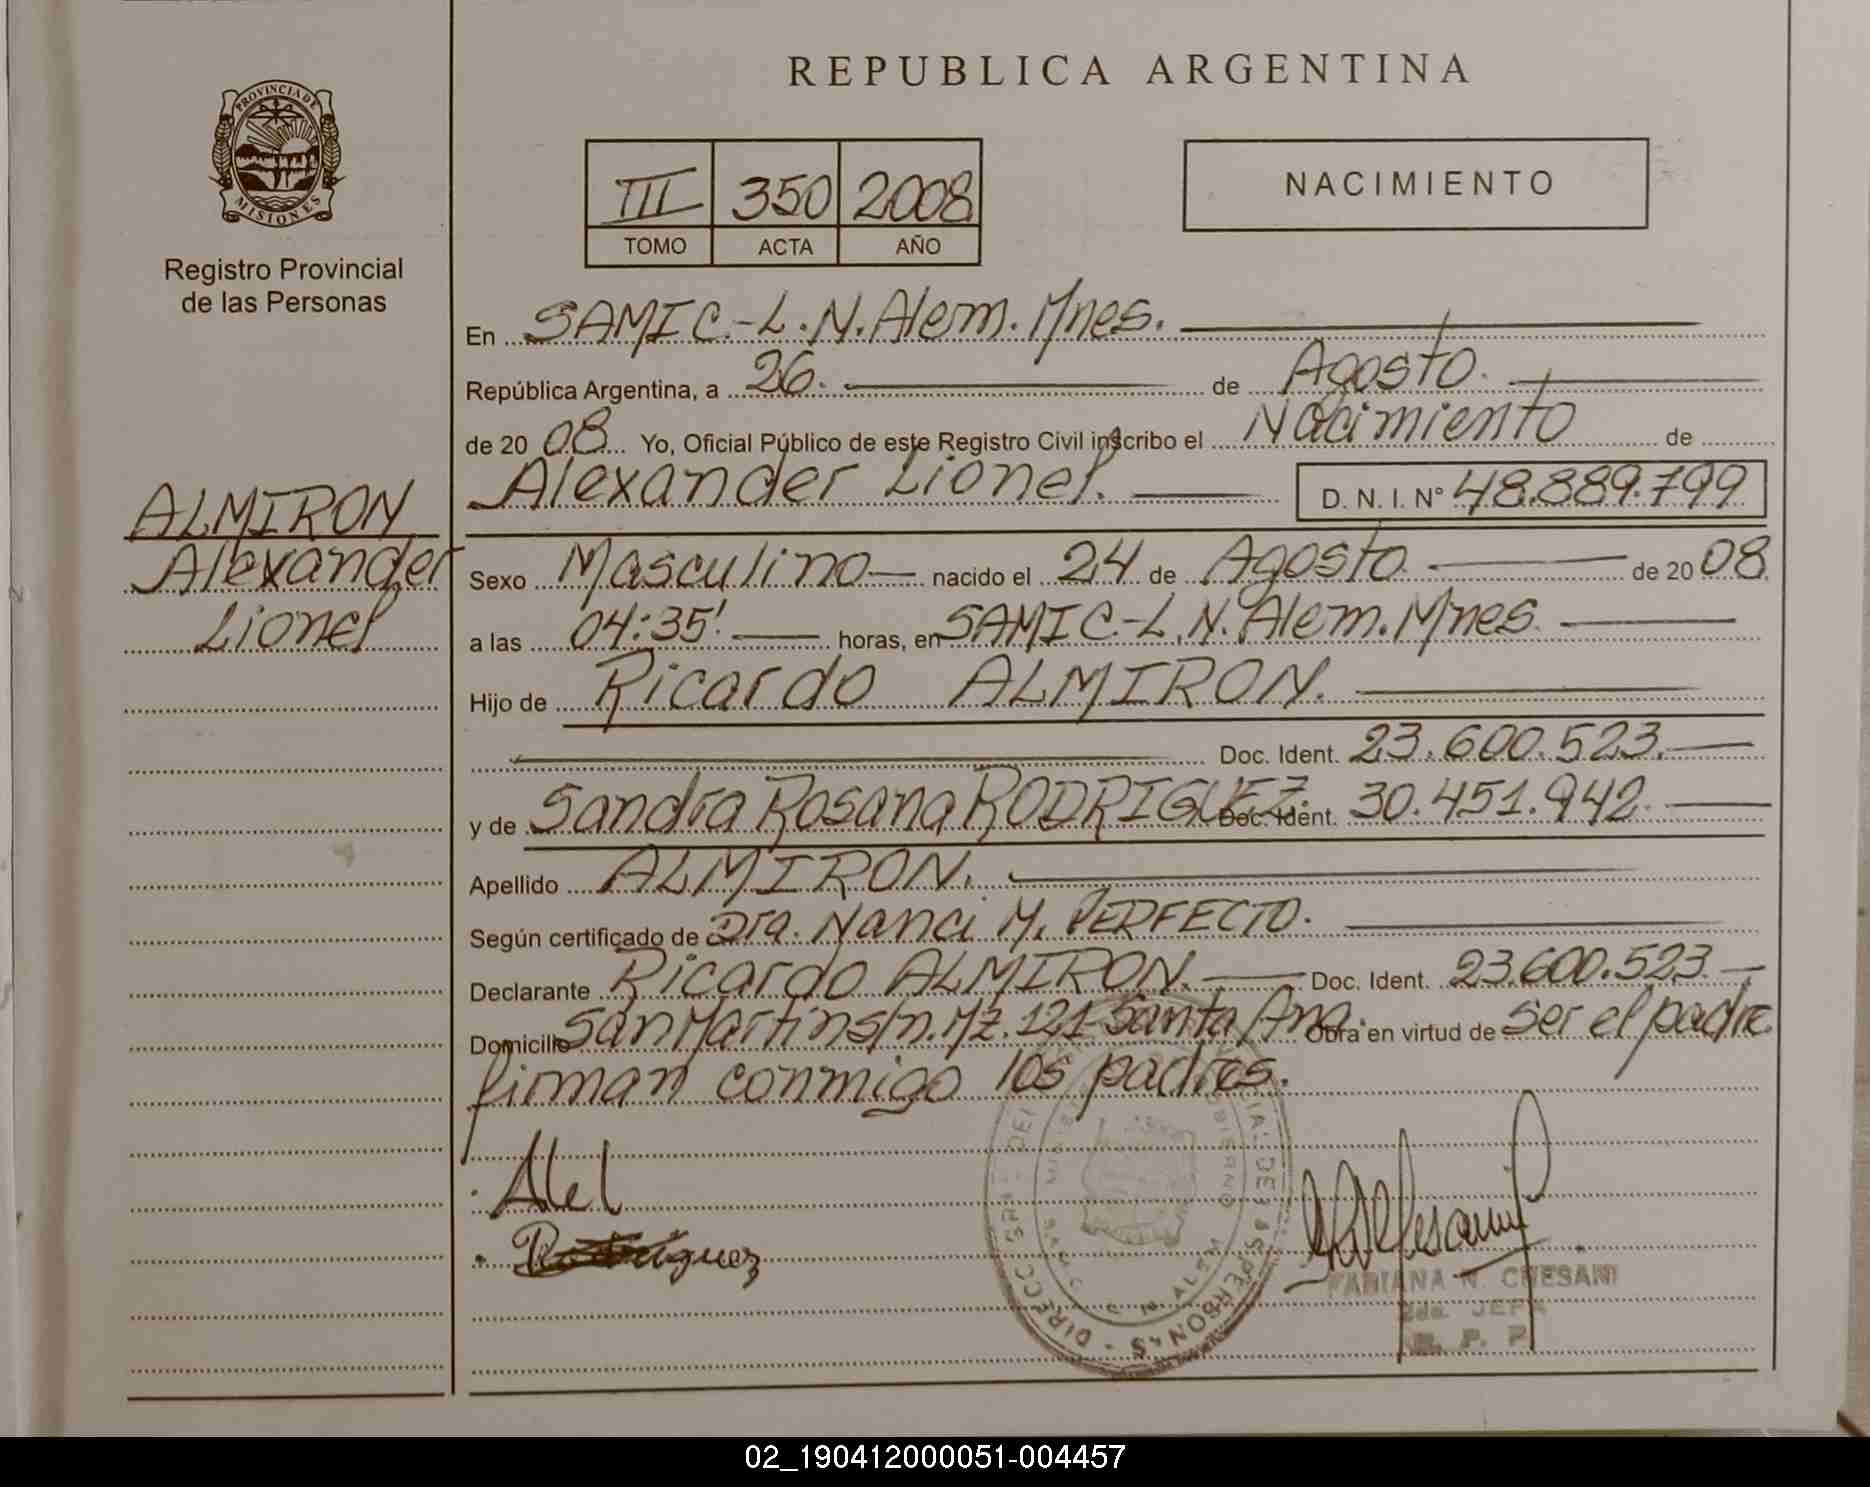 REPUBLICA ARGENTINA
PROVINCIA DE MISIONES
Registro Provincial
de las Personas
III 350 2008
TOMO ACTA AÑO
NACIMIENTO
En SAMIC.-L.N.Alem.Mnes.
República Argentina, a 26. de Agosto.
de 20 08 Yo, Oficial Público de este Registro Civil inscribo el Nacimiento de
Alexander Lionel. D. N. I. N° 48.889.799
ALMIRON
Alexander
Lionel
Sexo Masculino nacido el 24 de Agosto de 20 08
a las 04:35' horas, en SAMIC-L.N.Alem.Mnes.
Hijo de Ricardo ALMIRON.
Doc. Ident. 23.600.523.
y de Sandra Rosana RODRIGUEZ. Doc. Ident. 30.451.942.
Apellido ALMIRON.
Según certificado de Dra. Nanci M. PERFECTO.
Declarante Ricardo ALMIRON. Doc. Ident. 23.600.523.
Domicilio San Martin s/n. Mz. 121 Santa Ana. Obra en virtud de ser el padre
firman conmigo los padres.
Rodriguez
FABIANA N. CHESANI
2da. JEFA
R. P. P.
02_190412000051-004457